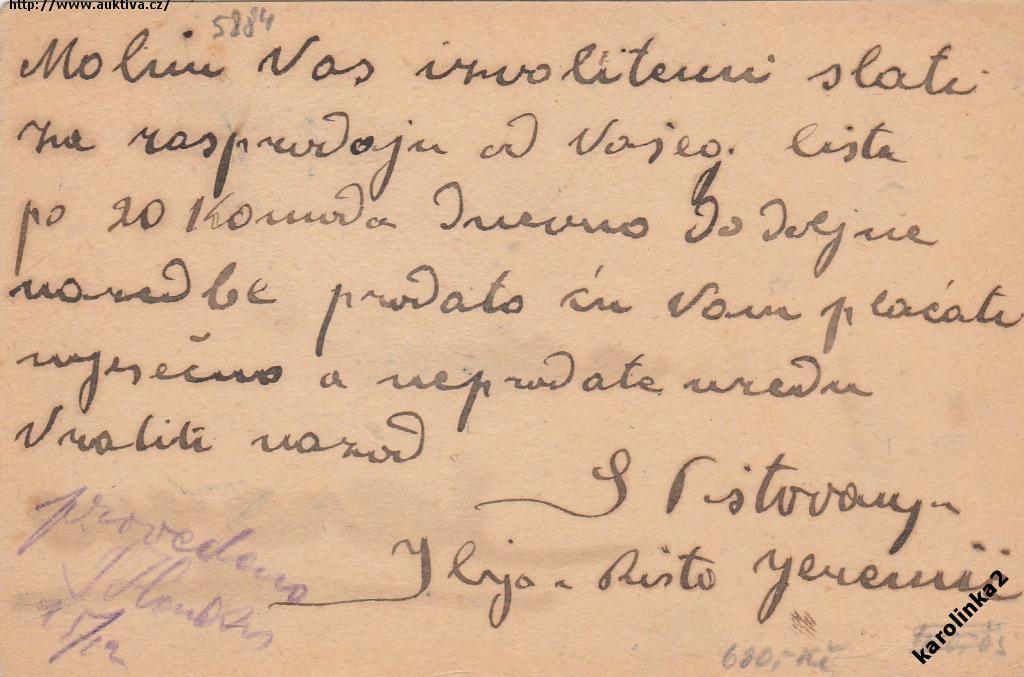 http://www.auktiva.cz/
5884
Molim Vas izvolitemi slati
za rasprodaju od Vašeg. lista
po 20 komada dnevno do daljne
naredbe prodato ću Vam plaćati
mjesečno a neprodate uredu
vratiti nazod
S Pištovanj
Ilija i Risto Jeremić
provedeno
15/12
680,- Kč
karolinka2